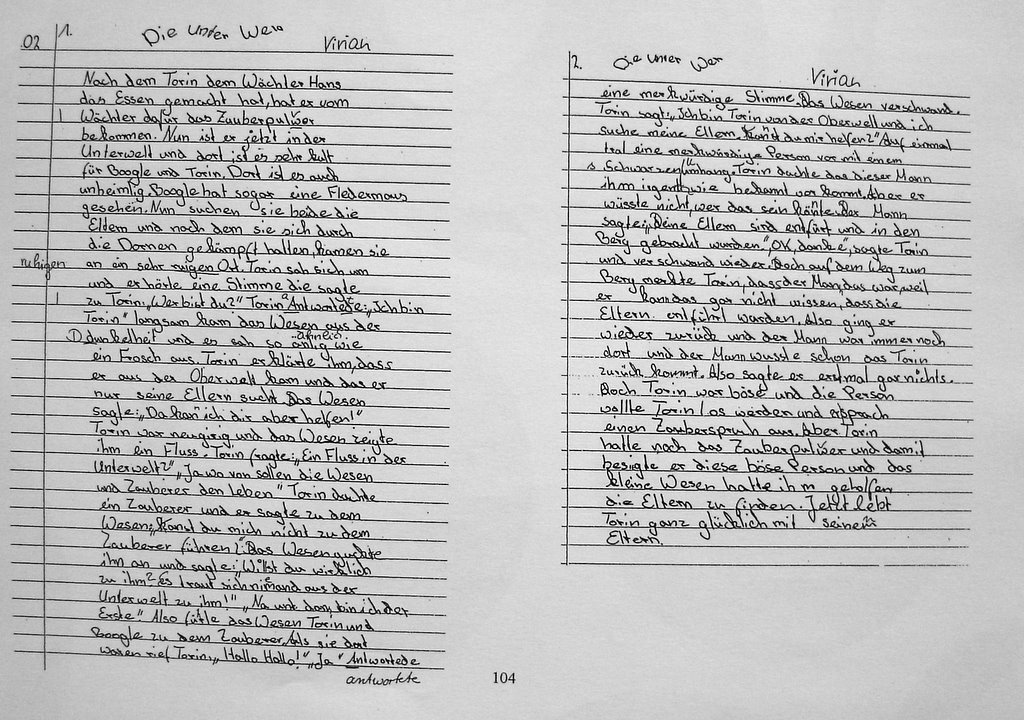 02 1. Die unter Welt Vivian
Nach dem Torin dem Wächter Hans
das Essen gemacht hat, hat er vom
Wächter dafür das Zauberpulver
bekommen. Nun ist er jetzt in der
Unterwelt und dort ist es sehr kalt
für Boogle und Torin. Dort ist es auch
unheimlig. Boogle hat sogar eine Fledermaus
gesehen. Nun suchen sie beide die
Eltern und nach dem sie sich durch
die Dornen gekämpft hatten, kamen sie
ruhigen an ein sehr ruigen Ort. Torin sah sich um
und er hörte eine Stimme die sagte
zu Torin: „Wer bist du?" Torin Antwortete: „Ich bin
Torin" langsam kam das Wesen aus der
D dunkelheit und es sah so änlig wie
ähnlich
ein Frosch aus. Torin erklärte ihm, dass
er aus der Oberwelt kam und das er
nur seine Eltern sucht. Das Wesen
sagte: „Da kan ich dir aber helfen!"
Torin war neugirig und das Wesen zeigte
ihm ein Fluss. Torin sagte: „Ein Fluss in der
Unterwelt?" „Ja wo von sollen die Wesen
und Zauberer den leben" Torin dachte
ein Zauberer und er sagte zu dem
Wesen: „Kanst du mich nicht zu dem
Zauberer führen?" Das Wesen guckte
ihn an und sagte: „Willst du wirklich
zu ihm? Es traut sich niemand aus der
Unterwelt zu ihm!" „Na und dan, bin ich der
Erste" Also fürte das Wesen Torin und
Boogle zu dem Zauberer. Als sie dort
waren rief Torin: „Hallo Hallo!" „Ja" Antwortede
antwortete
2. Die unter Wel Vivian
eine merkwürdige Stimme. Das Wesen verschwand.
Torin sagt: „Ich bin Torin von der Oberwelt und ich
suche meine Eltern. Kanst du mir helfen?" Auf einmal
trat eine merkwürdige Person vor mit einem
s. Schwarzen Umhang. Torin dachte das dieser Mann
ihm irgentwie bekannt vor kommt. Aber er
wüsste nicht, wer das sein könte. Der Mann
sagte: „Deine Eltern sind entfürt und in den
Berg gebracht wurden", „OK, danke", sagte Torin
und verschwand wieder. Doch auf dem Weg zum
Berg merkte Torin, dass der Man, das war, weil
er kann das gar nicht wissen, dass die
Eltern entführt warden. Also ging er
wieder zurück und der Mann war immer noch
dort und der Mann wusste schon das Torin
zurück kommt. Also sagte er erstmal gar nichts.
Doch Torin war böse und die Person
wollte Torin los werden und er sprach
einen Zauberspruch aus. Aber Torin
hatte noch das Zauberpulver und damit
besigte er diese böse Person und das
kleine Wesen hatte ihm geholfen
die Eltern zu finden. Jetzt lebt
Torin ganz glücklich mit seinen
Eltern.
104